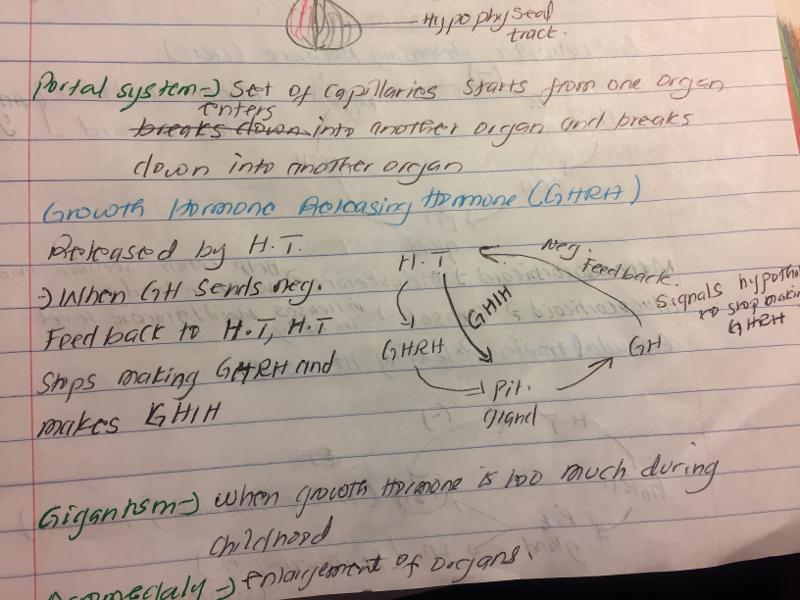 Hypophyseal
tract.
Portal system → Set of capillaries starts from one organ
enters
breaks down into another organ and breaks
down into another organ
Growth Hormone Releasing Hormone (GHRH)
Released by H.T.
→ When GH sends neg.
Feedback to H.T, H.T
stops making GHRH and
makes GHIH
H.T
Neg.
Feedback.
Signals hypotha
to stop makin
GHRH
GHIH
GHRH
GH
Pit.
gland
Gigantism → when growth Hormone is too much during
childhood
Acromegaly → enlargement of organs.